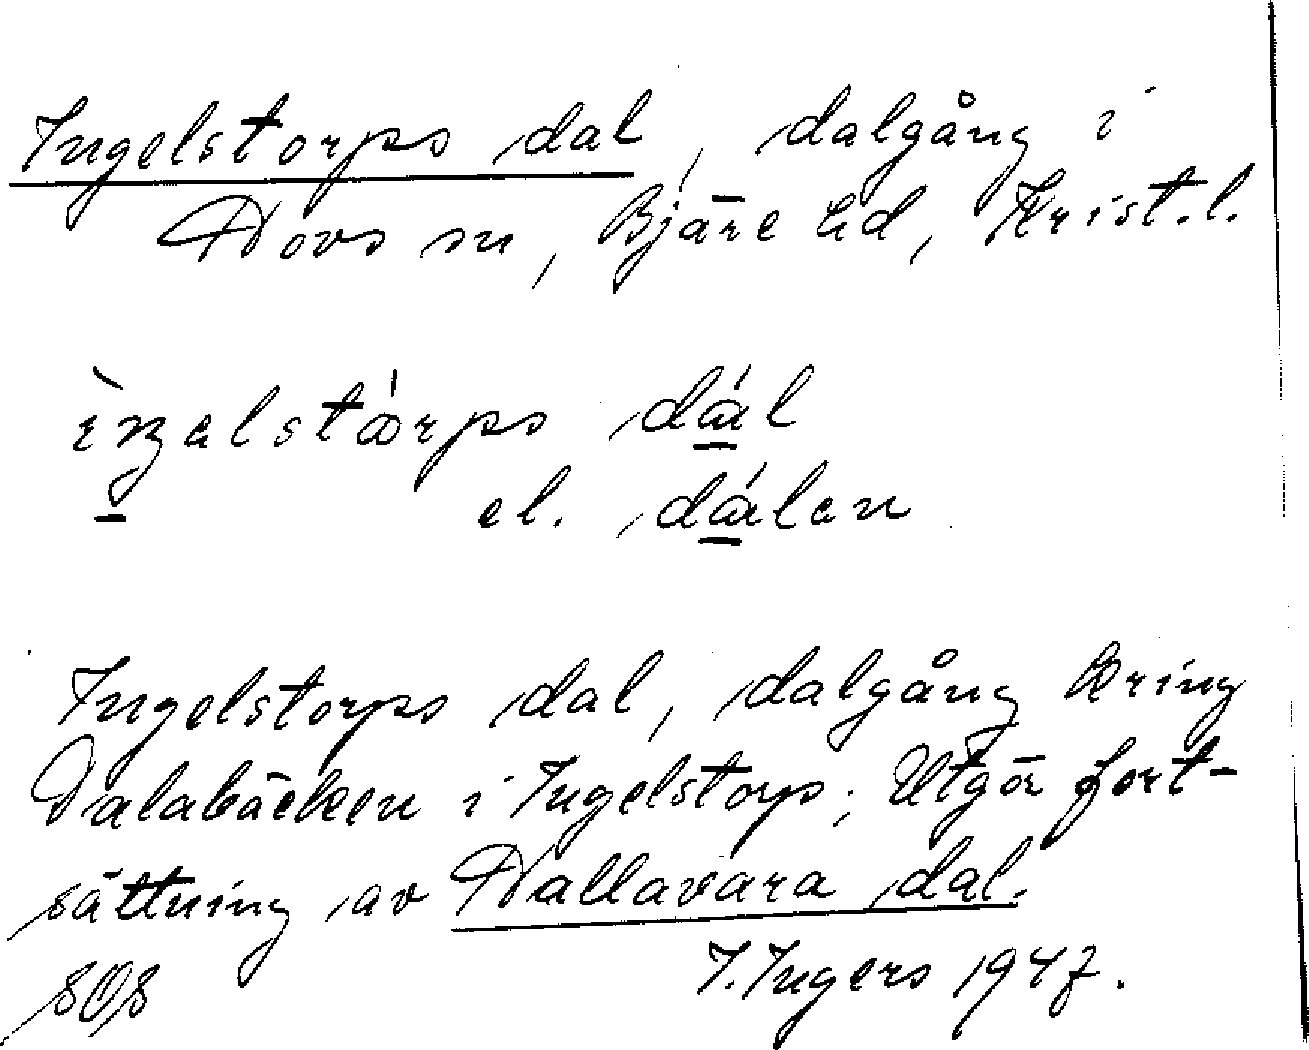 Ingelstorps dal, dalgång i
Hovs sn, Bjäre hd, Krist.l.
el. dálen
Ingelstorps dal, dalgång kring
Dalabäcken i Ingelstorp; Utgör fort-
sättning av Hallavara dal.
SOS I. Ingers 1947.